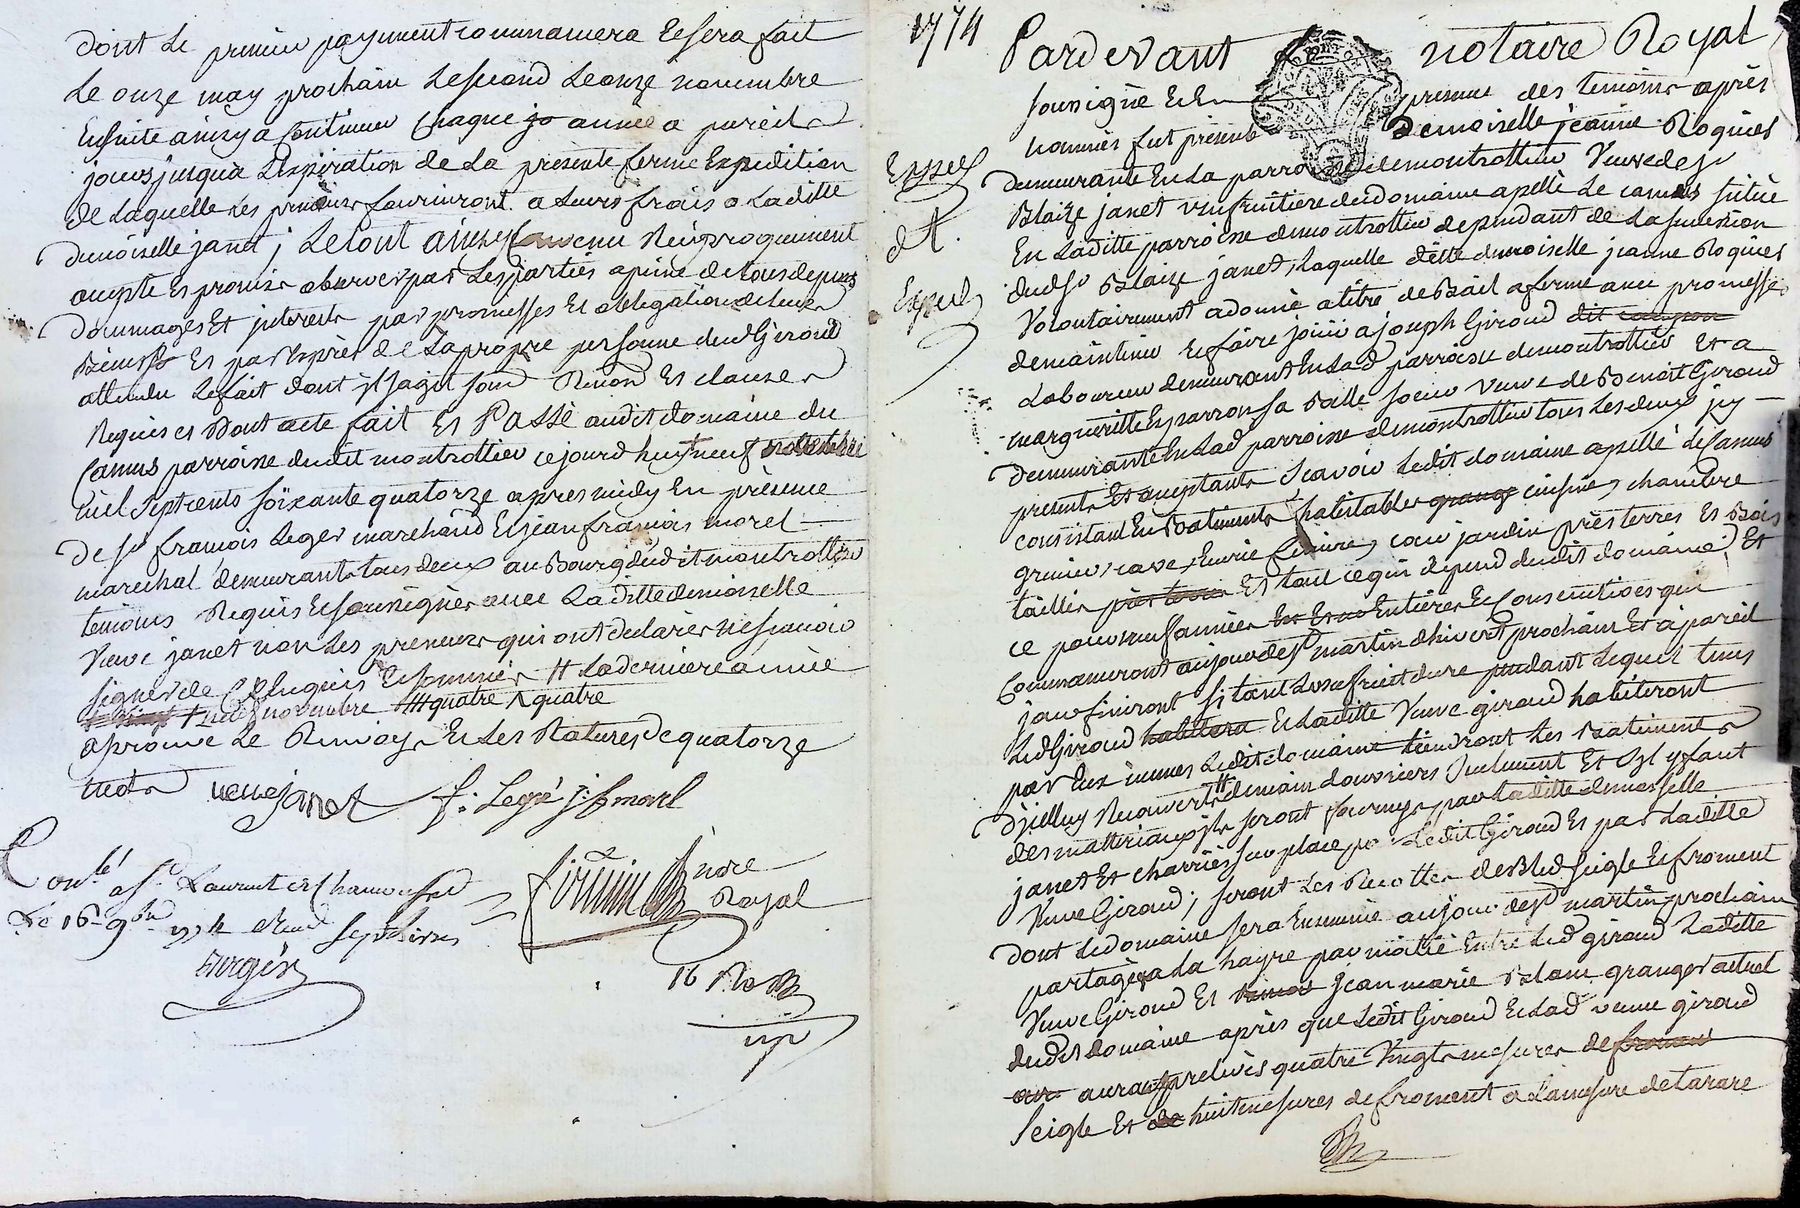 dont le premier payment commancera et sera fait
le onze may prochain le second le onze novembre
ensuite ainsy a continuer chaque année a pareils
jours jusqua l'expiration de la présente ferme Expedition
de laquelle les preneurs fourniront a leurs frais a laditte
demoiselle janet ; le tout ainsy convenu Reciproquement
accepte et promis observer par les parties a peine de tous depens
dommages Et interests par promesses et obligation de leurs
biens et par exprès de la propre personne dud Giroud
attendu le fait dont jl sagit sous Renon et clauses
Requises Dont acte fait et Passé audit domaine du
Camus parroisse dudit montrottier ce jourd'huy neuf
mil sept cents soixante quatorze apres midy En présence
de sr françois Leger marchand Et jean françois morel
marechal demeurants tous deux au Bourg dudit montrottier
temoins Requis Et soussignés avec laditte demoiselle
Veuve janet non les preneurs qui ont declaré ne scavoir
signer de ce Enquis Et sommés # la derniere année
novembre ### quatre ^ quatre
aprouvé le Renvoy Et les Ratures de quatorze
mots veuve janet f. Legé j: f morel
Conlé a St Laurent de Chamousset
Le 16e 9bre 1774 Reçu sept livres
nore
Royal
1774
Pardevant le notaire Royal
soussigné Et En presence des temoins après
nommés fut présente Demoiselle jeanne Roques
demeurante En la parroisse de montrottier Veuve de sr
Blaize janet usufruitiere du domaine apellé le camus situé
En laditte parroisse de montrottier dependant de la succession
dud sr Blaize janet, laquelle ditte demoiselle jeanne Roques
Volontairement a donné a titre de Bail a ferme avec promesse
de maintenir Et faire jouir a joseph Giroud dit
Laboureur demeurant En lad parroisse de montrottier Et a
margueritte Esparron sa Belle soeur Veuve de Benoit Giroud
demeurante En lad parroisse de montrottier tous les deux jcy
presents Et acceptants Scavoir ledit domaine apellé le Camus
consistant En Batiments habitables grange cuisine, chambre
grenier, cave, Ecurie, cour jardin près terres Et Bois
taillis près terres Et tout ce qui depend dudit domaine, Et
ce pour neuf années Entières Et Consecutives qui
Commanceront au jour de st martin d'hivert prochain Et a pareil
jour finiront si tant Lusufruit dure pendant lequel tems
led Giroud habitera Et laditte Veuve giroud habiteront
par Eux mêmes ledit domaine tiendront les Batiments
d'jcelluy Recouverts # de main d'ouvriers Seulement Et s'il y faut
des matteriaux jls seront fournys par laditte demoiselle
janet Et charriés sur place par ledit Giroud Et par laditte
Veuve Giroud ; seront les Recoltes de Bled Seigle Et froment
dont le domaine sera Ensemencé au jour de st martin prochain
partagés a la hayre par moitié Entre led giroud laditte
Veuve Giroud Et jean marie Blanc granger actuel
dudit domaine après que ledit Giroud Et lad veuve giroud
auront prelevés quatre Vingt mesures de froment
Seigle Et de huit mesures de froment a la mesure de tarare